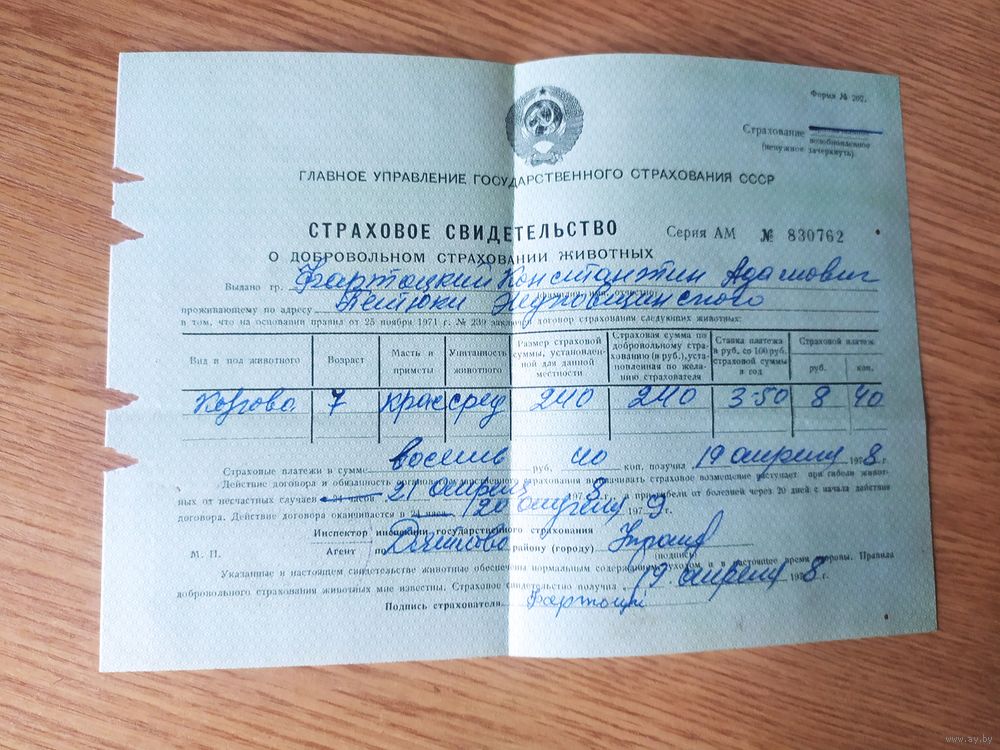 Форма № 202.
Страхование
возобновленное
(ненужное зачеркнуть)
ГЛАВНОЕ УПРАВЛЕНИЕ ГОСУДАРСТВЕННОГО СТРАХОВАНИЯ СССР
СТРАХОВОЕ СВИДЕТЕЛЬСТВО Серия АМ № 830762
О ДОБРОВОЛЬНОМ СТРАХОВАНИИ ЖИВОТНЫХ
Выдано гр. Фартоцкий Константин Адамович
проживающему по адресу
в том, что на основании правил от 25 ноября 1971 г. № 239 заключен договор страхования следующих животных:
Вид и пол животного Возраст Масть и приметы Упитанность животного Размер страховой суммы, установленной для данной местности Страховая сумма по добровольному страхованию (в руб.), установленная по желанию страхователя Ставка платежа в руб. со 100 руб. страховой суммы в год Страховой платеж руб. коп.
7 крас сред 240 240 3-50 8 40
Страховые платежи в сумме восемь руб. 40 коп. получил 19 апреля 1978 г.
Действие договора и обязанность страхования выплачивать страховое возмещение наступает при гибели живот-
ных от несчастных случаев 21 апреля 1978 г., а при гибели от болезней через 20 дней с начала действия
договора. Действие договора оканчивается в 24 часа 20 апреля 1979 г.
Инспектор инспекции государственного страхования
Агент по району (городу)
М. П. (подпись)
Указанные в настоящем свидетельстве животные обеспечены нормальным содержанием, уходом и в настоящее время здоровы. Правила
добровольного страхования животных мне известны. Страховое свидетельство получил 19 апреля 1978 г.
Подпись страхователя
www.ay.by